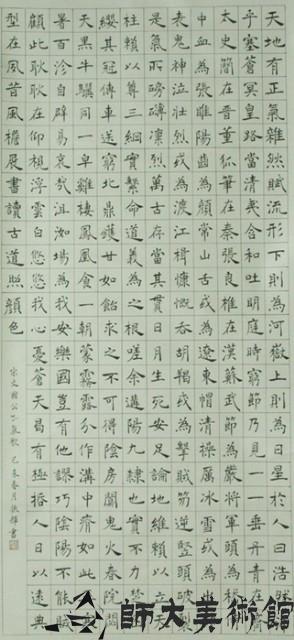 天地有正氣雜然賦流形下則為河嶽上則為日星於人曰浩然沛
乎塞蒼冥皇路當清夷含和吐明庭時窮節乃見一一垂丹青在齊
太史簡在晉董狐筆在秦張良椎在漢蘇武節為嚴將軍頭為嵇侍
中血為張睢陽齒為顏常山舌或為遼東帽清操厲冰雪或為出師
表鬼神泣壯烈或為渡江楫慷慨吞胡羯或為擊賊笏逆豎頭破裂
是氣所磅礡凜烈萬古存當其貫日月生死安足論地維賴以立天
柱賴以尊三綱實繫命道義為之根嗟余遘陽九隸也實不力楚囚
纓其冠傳車送窮北鼎鑊甘如飴求之不可得陰房闃鬼火春院閟
天黑牛驥同一皁雞棲鳳凰食一朝蒙霧露分作溝中瘠如此再寒
暑百沴自辟易哀哉沮洳場為我安樂國豈有他謬巧陰陽不能賊
顧此耿耿在仰視浮雲白悠悠我心憂蒼天曷有極哲人日以遠典
型在夙昔風檐展書讀古道照顏色
宋文國公正氣歌 乙未春月 書
師大美術館